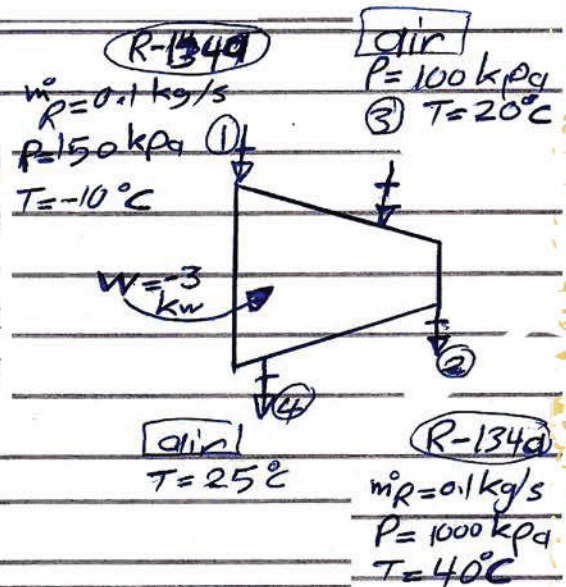 R-134a
air
ṁR=0.1 kg/s
P=100 kpa
③ T=20°C
P=150 kpa ①
T=-10°C
W=-3
kw
②
④
air
T=25°C
R-134a
ṁR=0.1 kg/s
P=1000 kpa
T=40°C